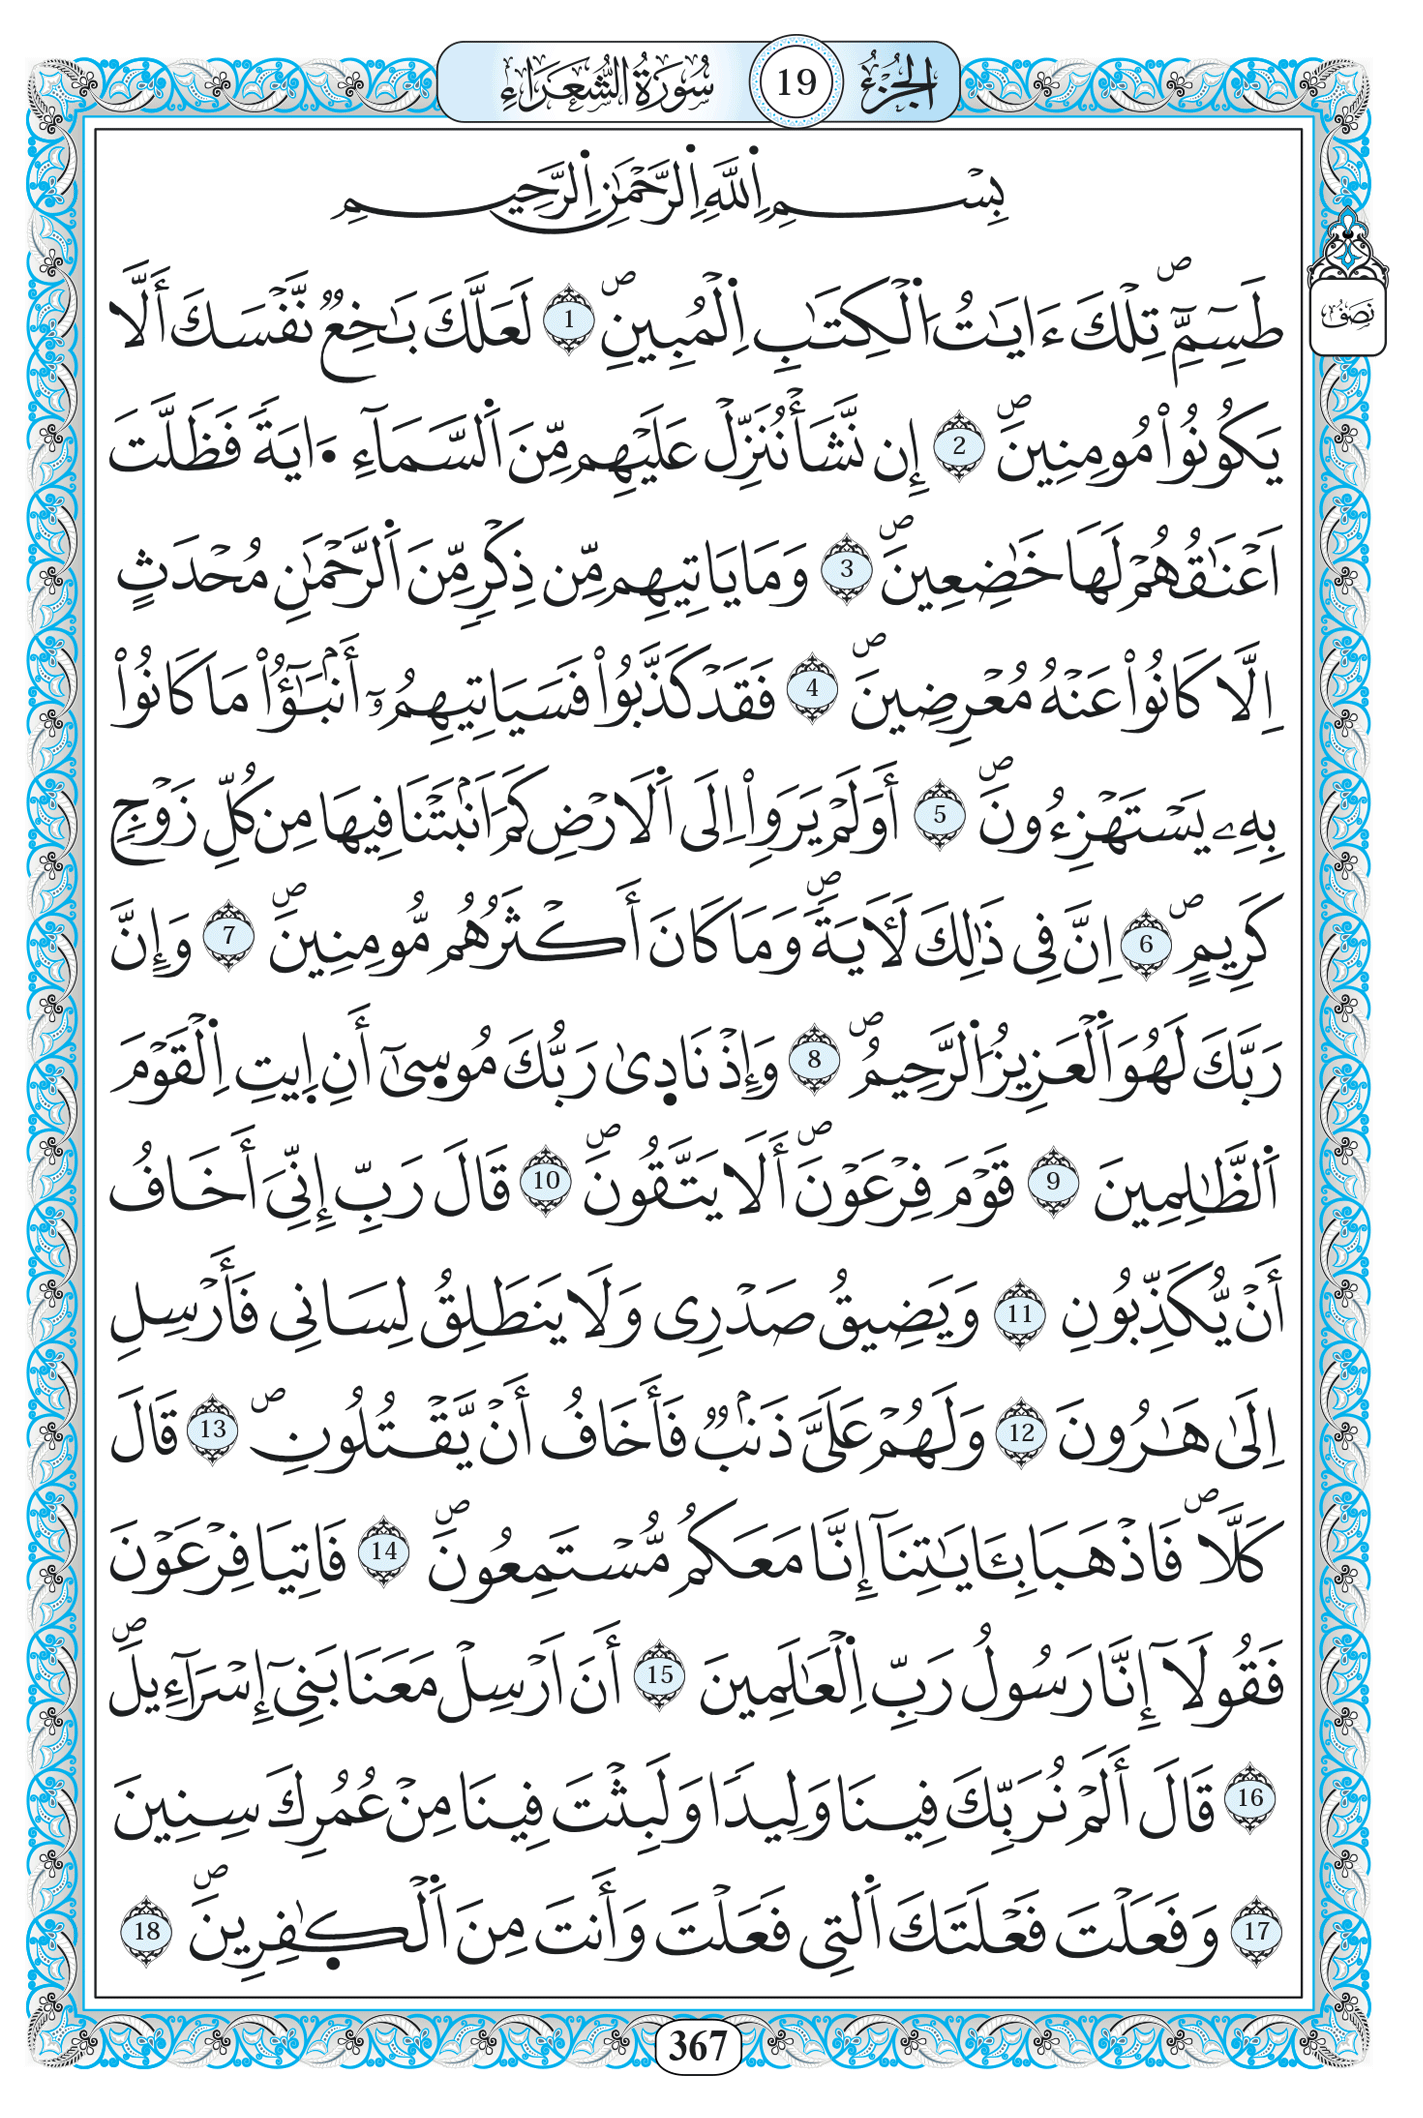 الجزء 19 سورة الشعراء
بِسْمِ اِللَّهِ اِلرَّحْمَٰنِ اِلرَّحِيمِ
نصف
طَسِٓمِّٓۖ تِلْكَ ءَايَٰتُ اُ۬لْكِتَٰبِ اِ۬لْمُبِينِۖ 1 لَعَلَّكَ بَٰخِعٞ نَّفْسَكَ أَلَّا
يَكُونُواْ مُومِنِينَۖ 2 إِن نَّشَأْ نُنَزِّلْ عَلَيْهِم مِّنَ اَ۬لسَّمَآءِ اَ۬يَةٗ فَظَلَّتَ
اَعْنَٰقُهُمْ لَهَا خَٰضِعِينَۖ 3 وَمَا يَاتِيهِم مِّن ذِكْرٖ مِّنَ اَ۬لرَّحْمَٰنِ مُحْدَثٍ
اِلَّا كَانُواْ عَنْهُ مُعْرِضِينَۖ 4 فَقَدْ كَذَّبُواْ فَسَيَاتِيهِمُۥٓ أَنۢبَٰٓؤُاْ مَا كَانُواْ
بِهِۦ يَسْتَهْزِءُونَۖ 5 أَوَلَمْ يَرَوِاْ اِلَى اَ۬لَارْضِ كَمَ اَنۢبَتْنَا فِيهَا مِن كُلِّ زَوْجٖ
كَرِيمٍۖ 6 اِنَّ فِي ذَٰلِكَ لَأٓيَةٗۖ وَمَا كَانَ أَكْثَرُهُم مُّومِنِينَۖ 7 وَإِنَّ
رَبَّكَ لَهُوَ اَ۬لْعَزِيزُ اُ۬لرَّحِيمُۖ 8 وَإِذْ نَادِىٰ رَبُّكَ مُوسِىٰٓ أَنِ اِيتِ اِ۬لْقَوْمَ
اَ۬لظَّٰلِمِينَ 9 قَوْمَ فِرْعَوْنَۖ أَلَا يَتَّقُونَۖ 10 قَالَ رَبِّ إِنِّيَ أَخَافُ
أَنْ يُّكَذِّبُونِ 11 وَيَضِيقُ صَدْرِي وَلَا يَنطَلِقُ لِسَانِي فَأَرْسِلِ
اِلَىٰ هَٰرُونَ 12 وَلَهُمْ عَلَيَّ ذَنۢبٞ فَأَخَافُ أَنْ يَّقْتُلُونِۖ 13 قَالَ
كَلَّاۖ فَاذْهَبَا بِـَٔايَٰتِنَآ إِنَّا مَعَكُم مُّسْتَمِعُونَۖ 14 فَاتِيَا فِرْعَوْنَ
فَقُولَآ إِنَّا رَسُولُ رَبِّ اِ۬لْعَٰلَمِينَ 15 أَنَ اَرْسِلْ مَعَنَا بَنِيٓ إِسْرَآءِيلَۖ
16 قَالَ أَلَمْ نُرَبِّكَ فِينَا وَلِيدٗا وَلَبِثْتَ فِينَا مِنْ عُمُرِكَ سِنِينَ
17 وَفَعَلْتَ فَعْلَتَكَ اَ۬لتِي فَعَلْتَ وَأَنتَ مِنَ اَ۬لْكٰ۪فِرِينَۖ 18
367